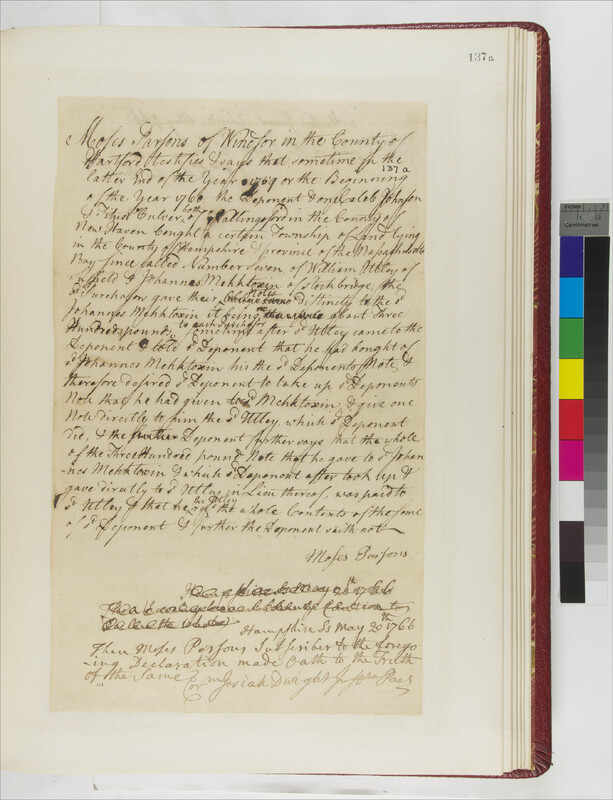 137a
Moses Parsons of Windsor in the County of
Hartford Testifies & says that sometime in the
137a
latter End of the Year 1759 or the Beginning
of the Year 1760 the Deponent & one Caleb Johnson
& Titus Culver both of Wallingford in the County of
New Haven bought a certain Township of Land lying
in the County of Hampshire & province of the Massachusetts
Bay since called Number seven of William Utley of
& Johannes Mehktoxin of Stockbridge, the
sd Purchasors gave their Notes distinctly to the sd
Johannes Mehktoxin it being about Three
Hundred pound to each Purchasor after sd Utley came to the
Deponent & told sd Deponent that he had bought of
sd Johannes Mehktoxin his the sd Deponents Note, &
therefore desired sd Deponent to take up sd Deponents
Note that he had given to sd Mehktoxin & give one
Note directly to him the sd Utley, which sd Deponent
did, & the Deponent further says that the whole
of the Three Hundred pound Note that he gave to sd Johan
-nes Mehktoxin & which sd Deponent after took up &
gave directly to sd Utley in Lieu thereof, was paid to
sd Utley & that he the sd Utley the whole Contents of the same
of sd Deponent & further the Deponent saith not
Moses Parsons
Hampshire Ss May 20th 1766
Hampshire Ss May 20th 1766
Then Moses Parsons Subscriber to the forego
-ing Declaration made Oath to the Truth
of the Same
Cor m Josiah Dwight Just Pacs
Centimetres